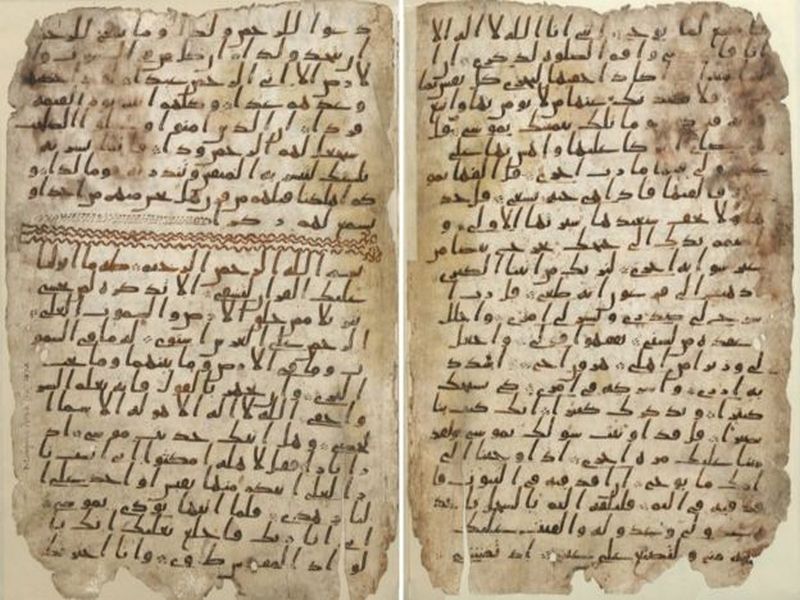 دعوا للرحمن ولدا وما ينبغي للرحمن
ان يتخذ ولدا ان كل من في السموت وا
لارض الا اتي الرحمن عبدا لقد احصهم
وعدهم عدا وكلهم اتيه يوم القيمه
فردا ان الذين امنوا وعملوا الصلحت
سيجعل لهم الرحمن ودا فانما يسرنه
بلسنك لتبشر به المتقين وتنذر به قوما لدا و
كم اهلكنا قبلهم من قرن هل تحس منهم من احد او
تسمع لهم ركزا
بسم الله الرحمن الرحيم طه ما انزلنا
عليك القران لتشقى الا تذكره لمن يخشى
تنزيلا ممن خلق الارض والسموت العلى
الرحمن على العرش استوى له ما في السمو
ت وما في الارض وما بينهما وما تحت
الثرى وان تجهر بالقول فانه يعلم السر
واخفى الله لا اله الا هو له الاسما ا
لحسنى وهل اتيك حديث موسى اذ
را نارا فقل لاهله امكثوا اني انست نا
را لعلي اتيكم منها بقبس او اجد على ا
لنار هدى فلما اتيها نودي يموسى
اني انا ربك فاخلع نعليك انك با
لواد المقدس طوى وانا اخترتك
فاستمع لما يوحى انني انا الله لا اله الا
انا واقم الصلوه لذكري ان ا
اكاد اخفيها لتجزى كل نفس بما
فلا يصدنك عنها من لا يومن بها واتبع
هويه وما تلك بيمينك يموسى قل
عليها واهش بها على
ولي فيها مارب اخرى قل القها يمو
سى فالقيها فاذا هي حيه تسعى قل خذ
ها ولا تخف سنعيدها سيرتها الاولى و
اضمم يدك الى جنحك تخرج بيضا من
غير سوا ايه اخرى لنريك من ايتنا الكبرى
اذهب الى فرعون انه طغى قل رب ا
شرح لي صدري ويسر لي امري واحلل
عقده من لسني يفقهوا قولي واجعل
لي وزيرا من اهلي هرون اخي اشدد
به ازري واشركه في امري كي نسبحك
كثيرا ونذكرك كثيرا انك كنت بنا
بصيرا قل قد اوتيت سولك يموسى ولقد
مننا عليك مره اخرى اذ اوحينا الى
امك ما يوحى ان اقذفيه في التبوت فا
قذفيه في اليم فليلقه اليم بالسحل ياخذ
ه عدو لي وعدو له والقيت عليك
محبه مني ولتصنع على عيني اذ تمشي